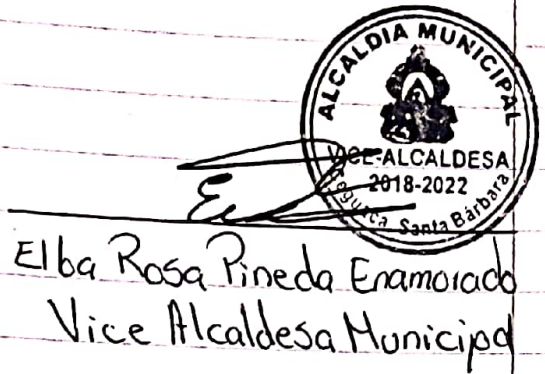 ALCALDIA MUNICIPAL
VICE-ALCALDESA
2018-2022
Santa Bárbara
Elba Rosa Pineda Enamorado
Vice Alcaldesa Municipal